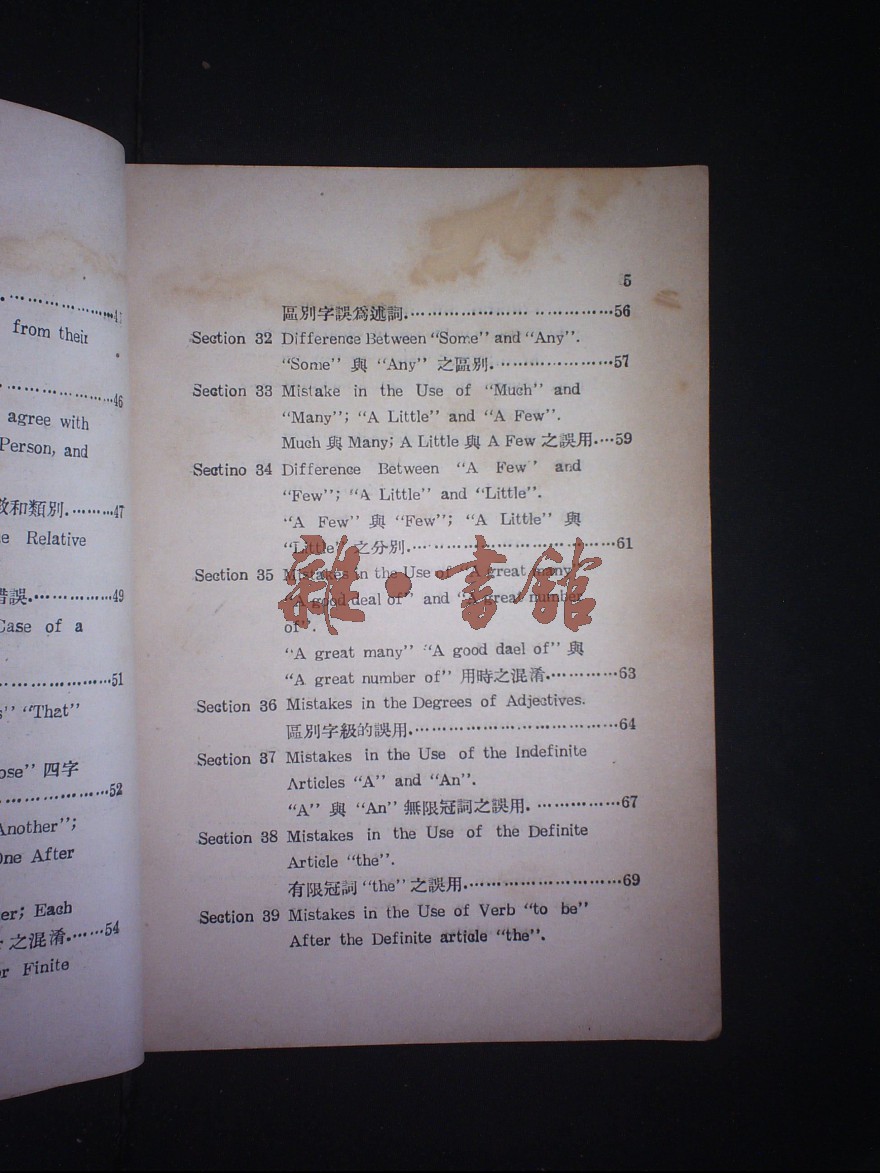 47
from their
46
agree with
Person, and
和類別.………47
Relative
錯誤.……………49
Case of a
…………………51
"That"
四字
…………………52
Another";
One After
er; Each
之混淆.……54
or Finite
5
區別字誤爲述詞.…………………… … …………56
Section 32 Difference Between "Some" and "Any".
"Some" 與 "Any" 之區別.……………………57
Section 33 Mistake in the Use of "Much" and
"Many"; "A Little" and "A Few".
Much 與 Many; A Little 與 A Few 之誤用.…59
Sectino 34 Difference Between "A Few" and
"Few"; "A Little" and "Little".
"A Few" 與 "Few"; "A Little" 與
"Little" 之分別.………………………………61
Section 35 Mistakes in the Use of "A great many"
"A good deal of" and "A great number
of".
"A great many" "A good dael of" 與
"A great number of" 用時之混淆.…………63
Section 36 Mistakes in the Degrees of Adjectives.
區別字級的誤用.………………………………64
Section 37 Mistakes in the Use of the Indefinite
Articles "A" and "An".
"A" 與 "An" 無限冠詞之誤用. ……………67
Section 38 Mistakes in the Use of the Definite
Article "the".
有限冠詞 "the" 之誤用.………………………69
Section 39 Mistakes in the Use of Verb "to be"
After the Definite article "the".
雜·書館